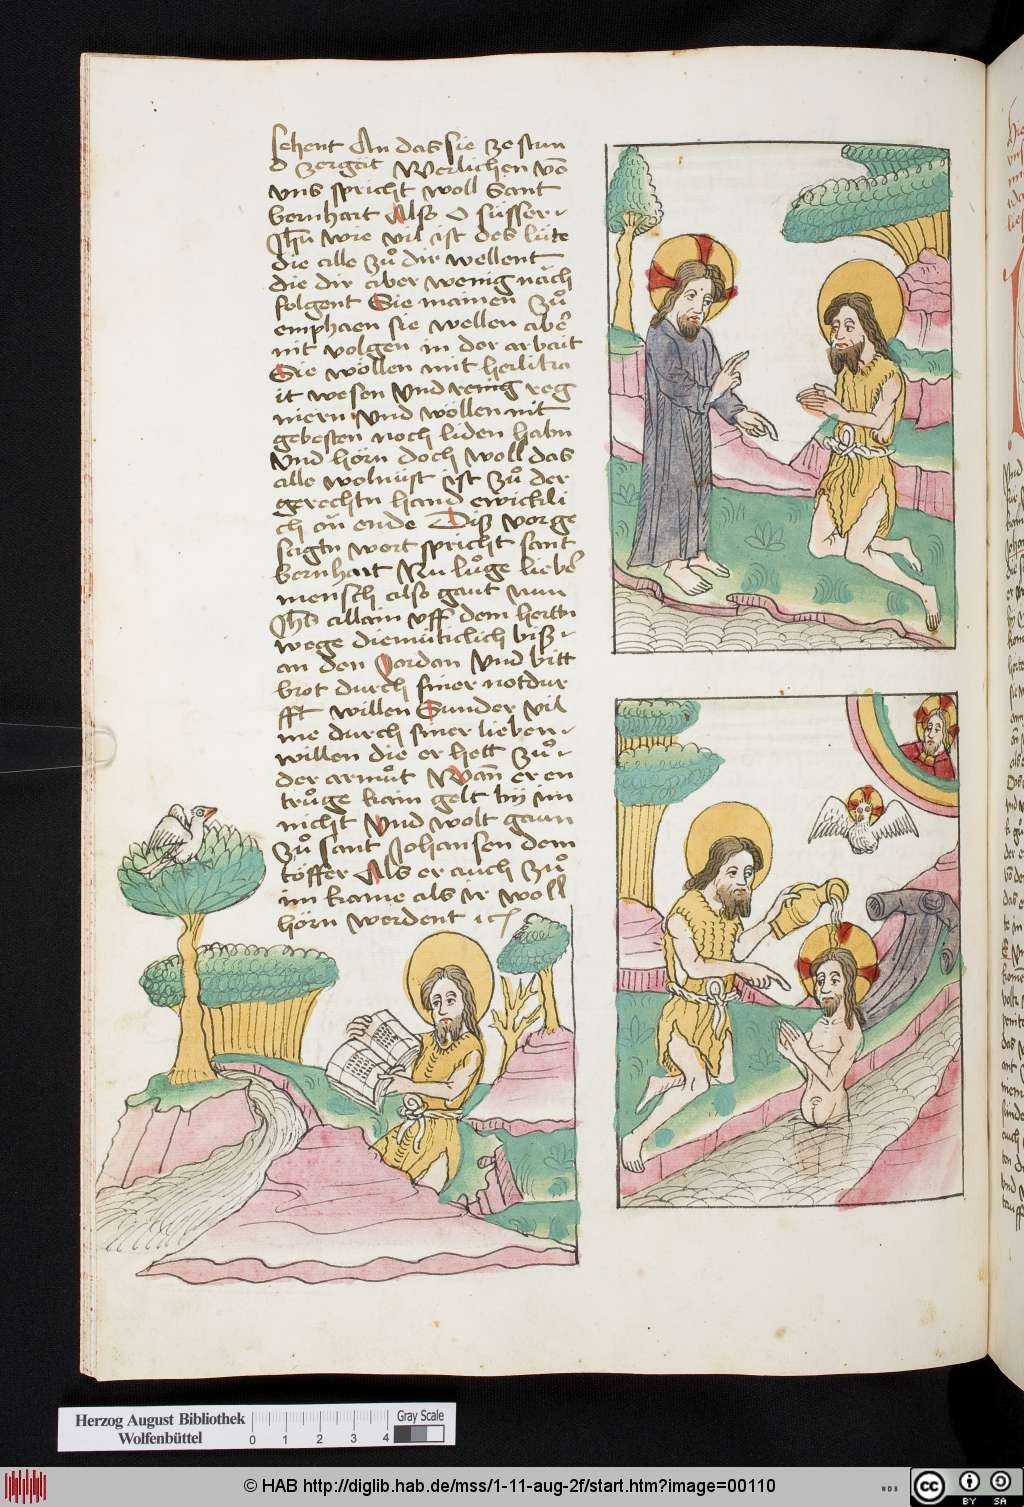 sehent An das sie ze stun
d zergät Werlichen vō
vns spricht woll Sant
bernhart Also O süsser
Jhū wie vil ist des lüte
die alle zuͦ dir wellent
die dir aber wenig näch
folgent Sie mainen zuͦ
emphaen sie wellen aber
nit volgen in der arbait
Sie wöllen mit herlikra
it wesen Vnd reinig reg
niern Vnd wöllen nit
gebesten noch liden habn
Vnd hörn doch woll das
alle wolnust ist zuͦ der
gerechtn hand ewickli
ch on ende Diß vorge
sagtn wort spricht sant
bernhart Nu luͦge lieber
mensch also gaut nun
Jhs allain vff dem hertn
wege diemüticlich biß
an den Jordan Vnd bitt
brot durch siner notdur
fft willen Sunder vil
me durch siner lieben
willen die er hett zuͦ
der armuͦt Wan er en
truͦge kain gelt bij im
nicht Vnd wolt gaun
zuͦ sant Johansen dem
töffer Als er auch zuͦ
im kame als ir woll
hörn werdent
Herzog August Bibliothek
Wolfenbüttel
0 1 2 3 4
Gray Scale
© HAB http://diglib.hab.de/mss/1-11-aug-2f/start.htm?image=00110
WDB
cc BY SA